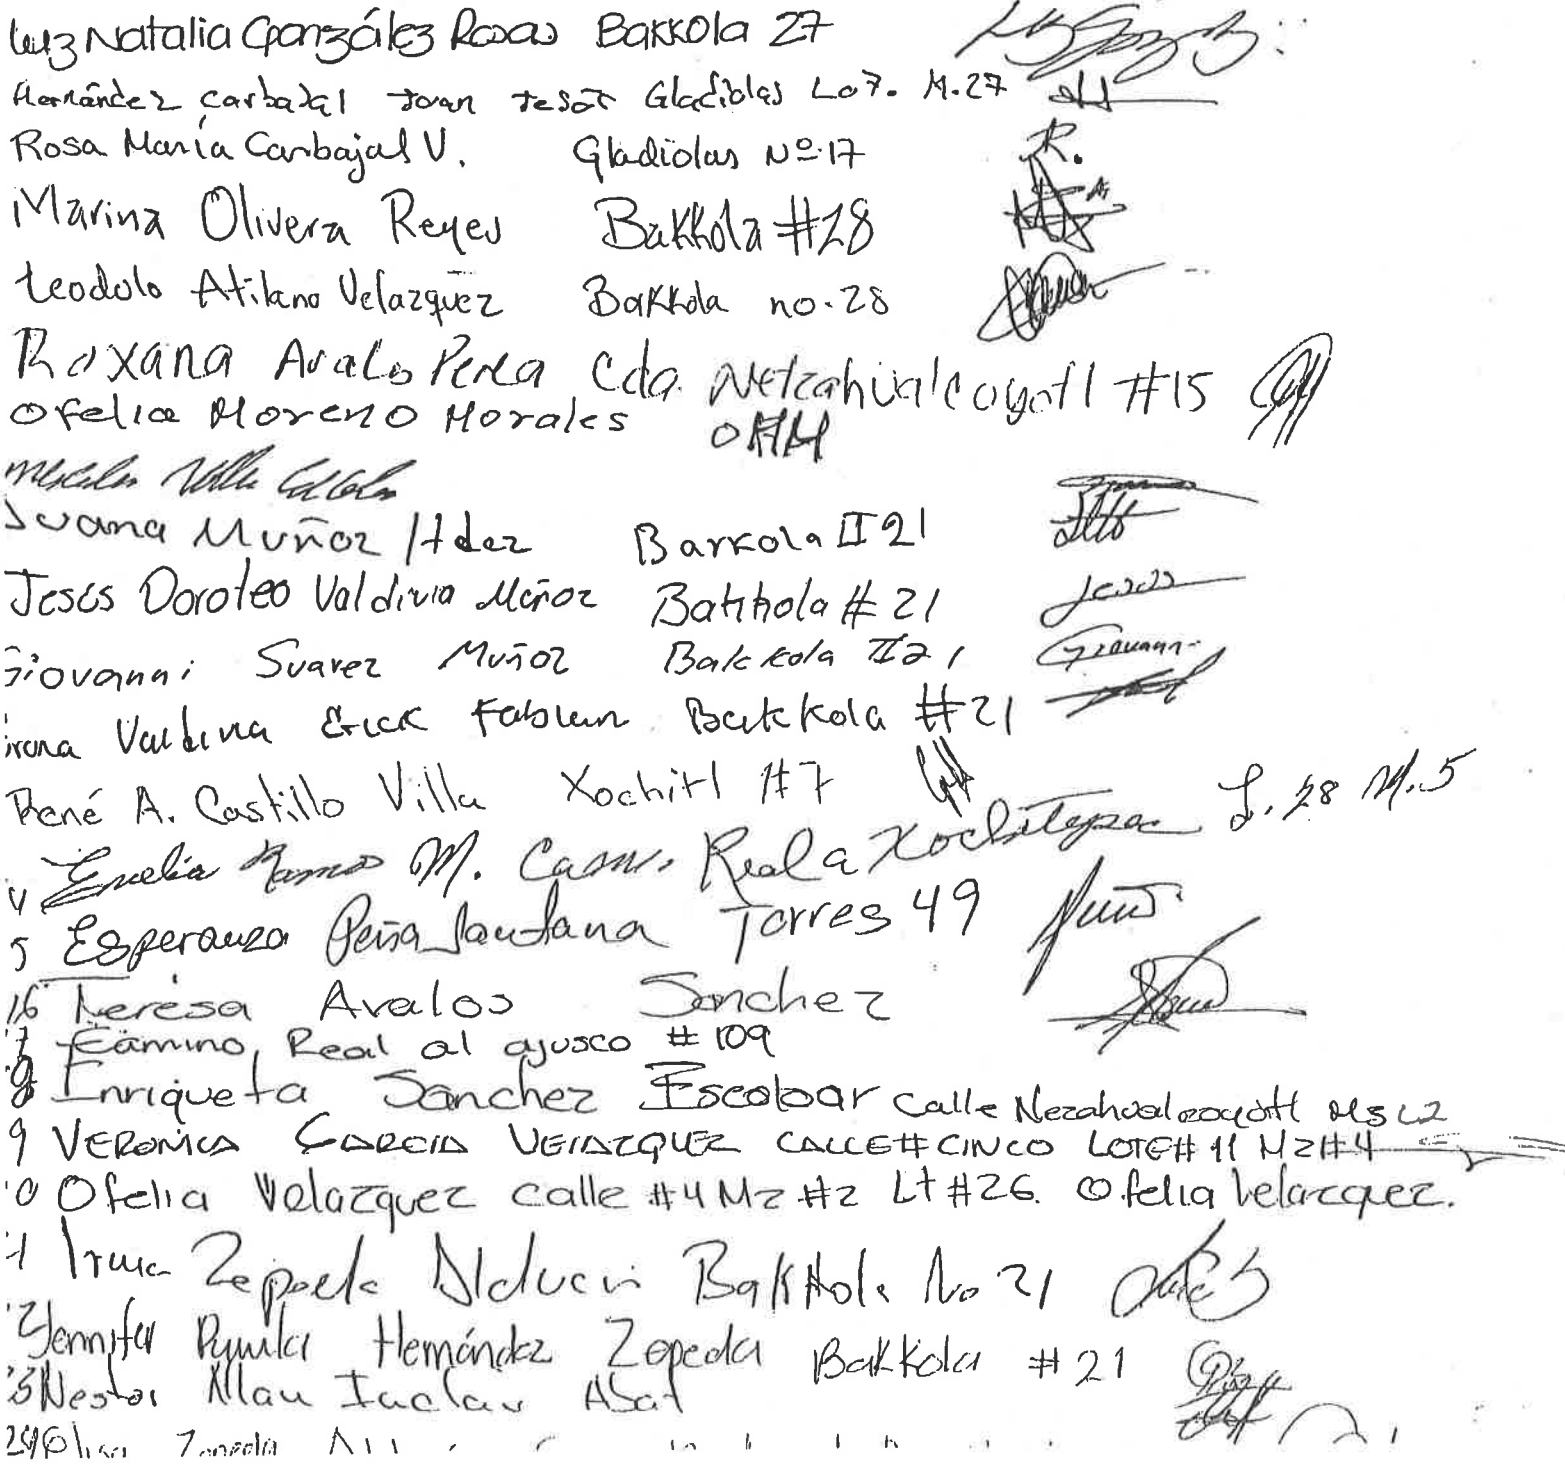 Luz Natalia González Rosas Bakkola 27
Hernández Carbajal Joan Jesús Gladiolas Lo7. M.27
Rosa María Carbajal V. Gladiolas Nº 17
Marina Olivera Reyes Bakkola #28
teodolo Atilano Velazquez Bakkola no. 28
Roxana Avalos Perea Cda. Netzahualcoyotl #15
Ofelia Moreno Morales OMM
Juana Muñoz Hdez Barkola II 21
Jesús Doroteo Valdivia Muñoz Bakkola # 21 Jesús
Giovanni Suarez Muñoz Bakkola II 21 Giovanni
Valdivia Erick Fabian Bakkola #21
René A. Castillo Villa Xochitl #7
Emelia Ramos M. Camino Real a Xochitepec L. 28 M. 5
5 Esperanza Peña Santana Torres 49
16 Teresa Avalos Sanchez
7 Camino Real al ajusco # 109
8 Enriqueta Sanchez Escobar Calle Nezahualcoyotl M5 L2
9 VERONICA GARCIA VELAZQUEZ CALLE# CINCO LOTE# 11 MZ#4
0 Ofelia Velazquez Calle #4 Mz #2 Lt #26. Ofelia Velazquez.
Irma Zepeda Bakkola No 21
Jennifer Hernández Zepeda Bakkola # 21
Nestor Allan Inclan
24 Zepeda